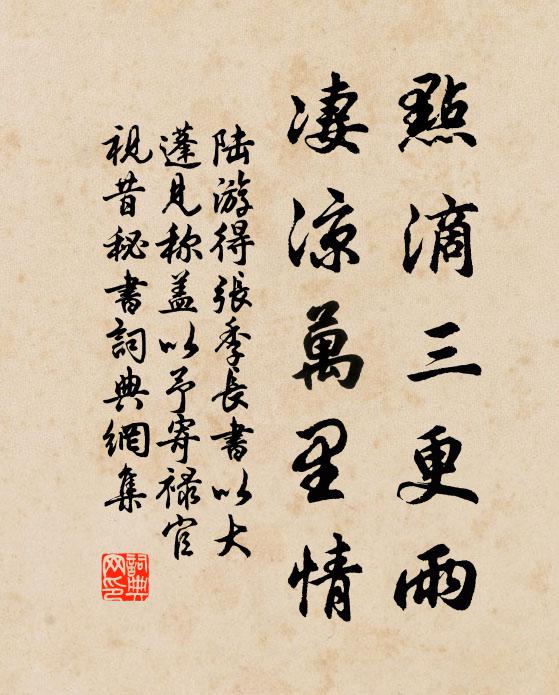 點滴三更雨
淒涼萬里情
陆游得張季長書以大
蓬見称盖以予寄禄官
視昔秘書詞典網集
詞典
网印